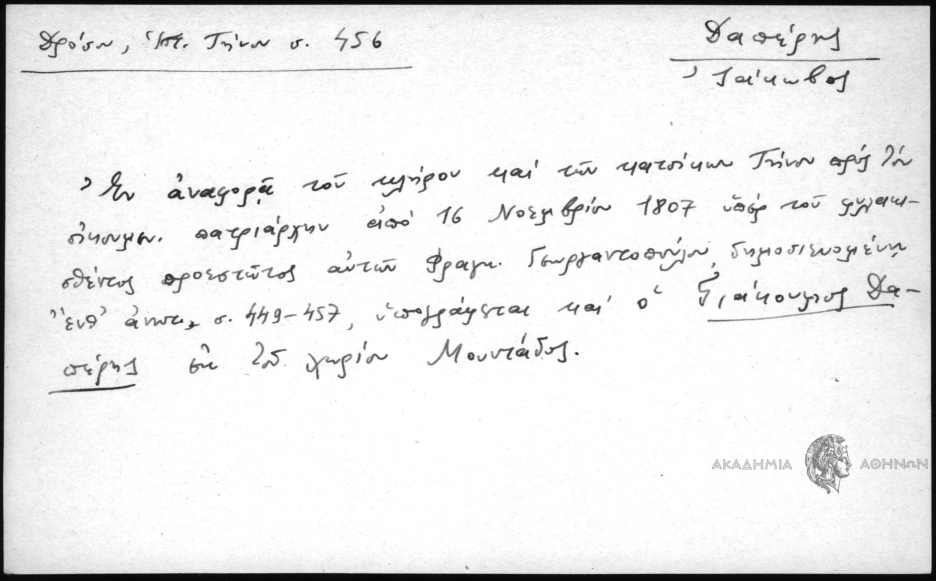 Δρόσου, Ἱστ. Τήνου σ. 456
Δαπέρης
Ἰάκωβος
Ἐν ἀναφορᾷ τοῦ κλήρου καὶ τῶν κατοίκων Τήνου πρὸς τὸν
οἰκουμεν. πατριάρχην ἀπὸ 16 Νοεμβρίου 1807 ὑπὲρ τοῦ φυλακι-
σθέντος προεστῶτος αὐτῶν Φραγκ. Γεωργαντοπούλου, δημοσιευομένῃ
ἔνθ' ἀνωτ. σ. 449-457, ὑπογράφεται καὶ ὁ Γιάκουμος Δα-
πέρης ἐκ τοῦ χωρίου Μουντάδος.
ΑΚΑΔΗΜΙΑ ΑΘΗΝΩΝ